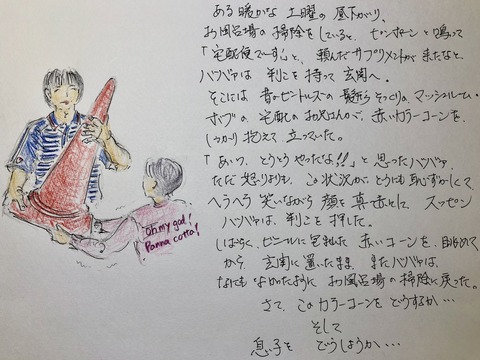 ある暖かな 土曜の 昼下がり、
お風呂場の掃除をしていると、ピンポーンと鳴って
「宅配便でーす」と、頼んだサプリメントが来たなと、
バツバァは 判こを持って玄関へ。
そこには 昔のビートルズの髪形そっくりの、マッシュルーム・
ボブの 宅配のお兄さんが、赤いカラーコーンを、
しっかり抱えて 立っていた。
「あいつ、とうとうやったな!!」と思ったバツバァ、
ただ 怒りよりも、この状況が、どうにも恥ずかしくて、
ヘラヘラ 笑いながら 顔を 真赤にして スッピン
バツバァは、判こを 押した。
しばらく、ビニールに包まれた 赤いコーンを、眺めて
から、玄関に置いたまま、またバツバァは、
なにも なかったように お風呂場の掃除に戻った。
さて、このカラーコーンを どうするか…
そして
息子を どうしようか…
Oh my god!
Panna cotta!